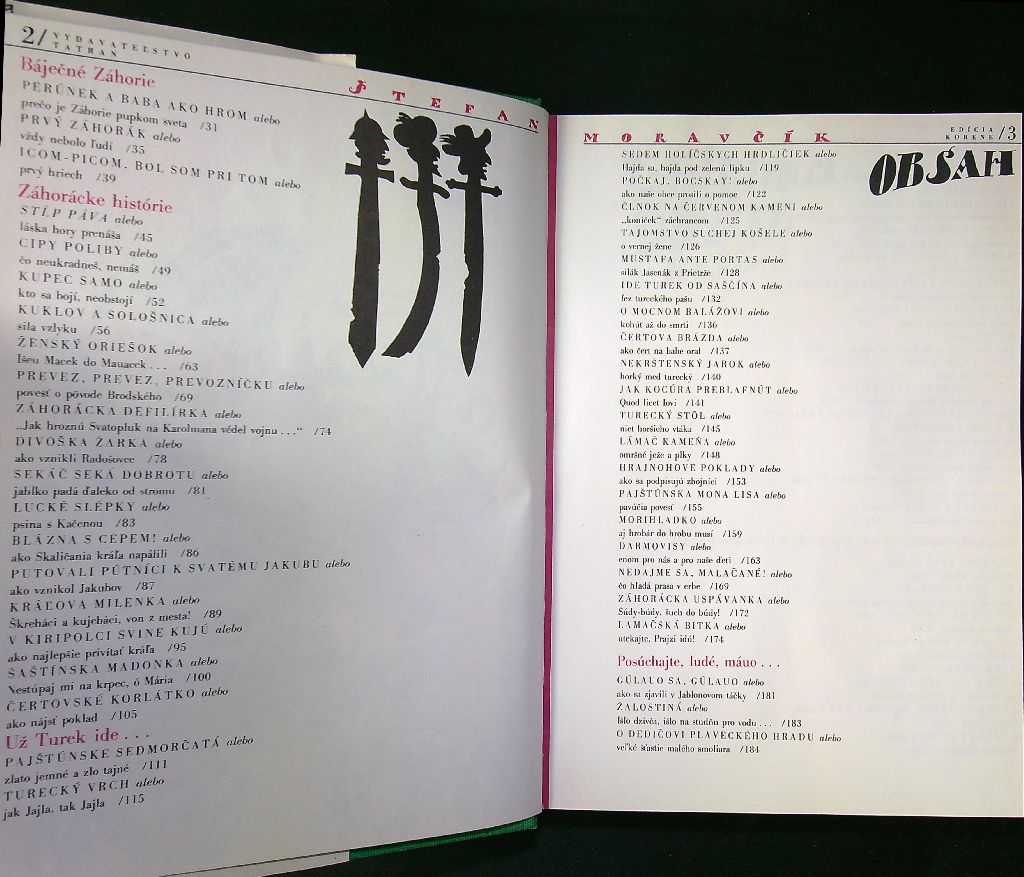 2/ VYDAVATEĽSTVO
TATRAN
Báječné Záhorie
PERÚNEK A BABA AKO HROM alebo
prečo je Záhorie pupkom sveta /31
PRVÝ ZÁHORÁK alebo
vždy nebolo ľudí /35
ICOM-PICOM, BOL SOM PRI TOM alebo
prvý hriech /39
Záhorácke histórie
STĹP PÁVA alebo
láska hory prenáša /45
CIPY POLIBY alebo
čo neukradneš, nemáš /49
KUPEC SAMO alebo
kto sa bojí, neobstojí /52
KUKLOV A SOLOŠNICA alebo
sila vzlyku /56
ŽENSKÝ ORIEŠOK alebo
Išeu Macek do Mauacek... /63
PREVEZ, PREVEZ, PREVOZNÍČKU alebo
povesť o pôvode Brodského /69
ZÁHORÁCKA DEFILÍRKA alebo
„Jak hroznú Svatopluk na Karolmana védel vojnu...“ /74
DIVOŠKA ŽARKA alebo
ako vznikli Radošovce /78
SEKÁČ SEKÁ DOBROTU alebo
jablko padá ďaleko od stromu /81
LUCKÉ SLÉPKY alebo
psina s Kačenou /83
BLÁZNA S CEPEM! alebo
ako Skaličania kráľa napálili /86
PUTOVALI PÚTNÍCI K SVATÉMU JAKUBU alebo
ako vznikol Jakubov /87
KRÁĽOVA MILENKA alebo
Škreháci a kujebáci, von z mesta! /89
V KIRIPOLCI SVINE KUJÚ alebo
ako najlepšie privítať kráľa /95
ŠAŠTÍNSKA MADONKA alebo
Nestúpaj mi na krpec, ó Mária /100
ČERTOVSKÉ KORLÁTKO alebo
ako nájsť poklad /105
Už Turek ide...
PAJŠTÚNSKE SEDMORČATÁ alebo
zlato jemné a zlo tajné /111
TURECKÝ VRCH alebo
jak Jajla, tak Jajla /115
ŠTEFAN
MORAVČÍK
EDÍCIA
KORENE /3
OBSAH
SEDEM HOLÍČSKYCH HRDLIČIEK alebo
Hajda sa, hajda pod zelenú lipku /119
POČKAJ, BOCSKAY! alebo
ako naše ulice prosili o pomoc /122
ČLNOK NA ČERVENOM KAMENI alebo
„koníček“ záchrancom /125
TAJOMSTVO SUCHEJ KOŠELE alebo
o vernej žene /126
MUSTAFA ANTE PORTAS alebo
silák Jasenák z Prietrže /128
IDE TUREK OD SAŠČÍNA alebo
fez tureckého pašu /132
O MOCNOM BALÁŽOVI alebo
kohút až do smrti /136
ČERTOVA BRÁZDA alebo
ako čert na babe oral /137
NEKRSTENSKÝ JAROK alebo
horký med turecký /140
JAK KOCÚRA PREBLAFNÚT alebo
Quod licet Iovi /141
TURECKÝ STÔL alebo
niet horšieho vtáka /145
LÁMAČ KAMEŇA alebo
omršné ježe a plky /148
HRAJNOHOVE POKLADY alebo
ako sa podpisujú zbojníci /153
PAJŠTÚNSKA MONA LISA alebo
pavúčia povesť /155
MORIHLADKO alebo
aj hrobár do hrobu musí /159
DARMOVISY alebo
enom pro nás a pro naše deti /163
NEDAJME SA, MALAČANÉ! alebo
čo hľadá prasa v erbe /169
ZÁHORÁCKA USPÁVANKA alebo
Súdy-búdy, šuch do búdy! /172
LAMAČSKÁ BITKA alebo
utekajte, Prajzi idú! /174
Posúchajte, ludé, máuo...
GÚLAUO SA, GÚLAUO alebo
ako sa zjavili v Jablonovom táčky /181
ŽALOSTINÁ alebo
Išlo dzívča, išlo na studňu pro vodu... /183
O DEDIČOVI PLAVECKÉHO HRADU alebo
veľké šťastie malého smoliara /184